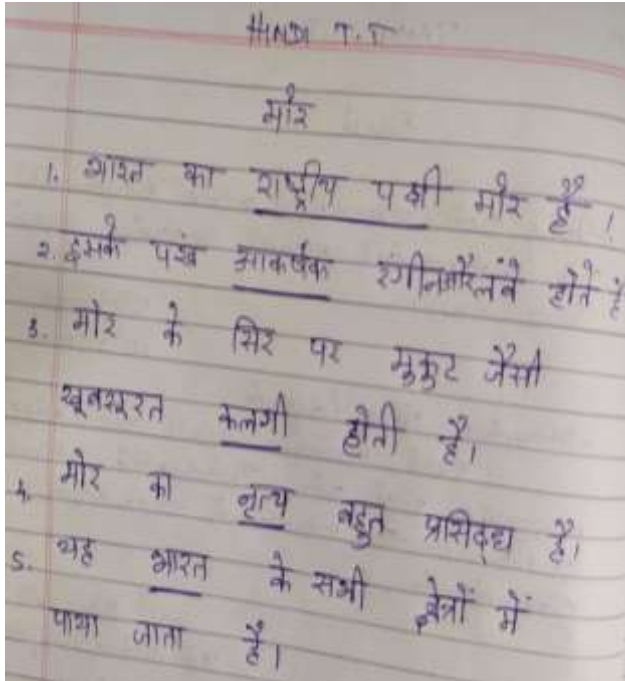 HINDI T.T
मोर
1. भारत का राष्ट्रीय पक्षी मोर है ।
2. इसके पखं आकर्षक रंगीनऔरलंबे होते हैं
3. मोर के सिर पर मुकुट जैसी
खूबसूरत कलगी होती है।
4. मोर का नृत्य बहुत प्रसिद्ध है।
5. यह भारत के सभी क्षेत्रों में
पाया जाता है।